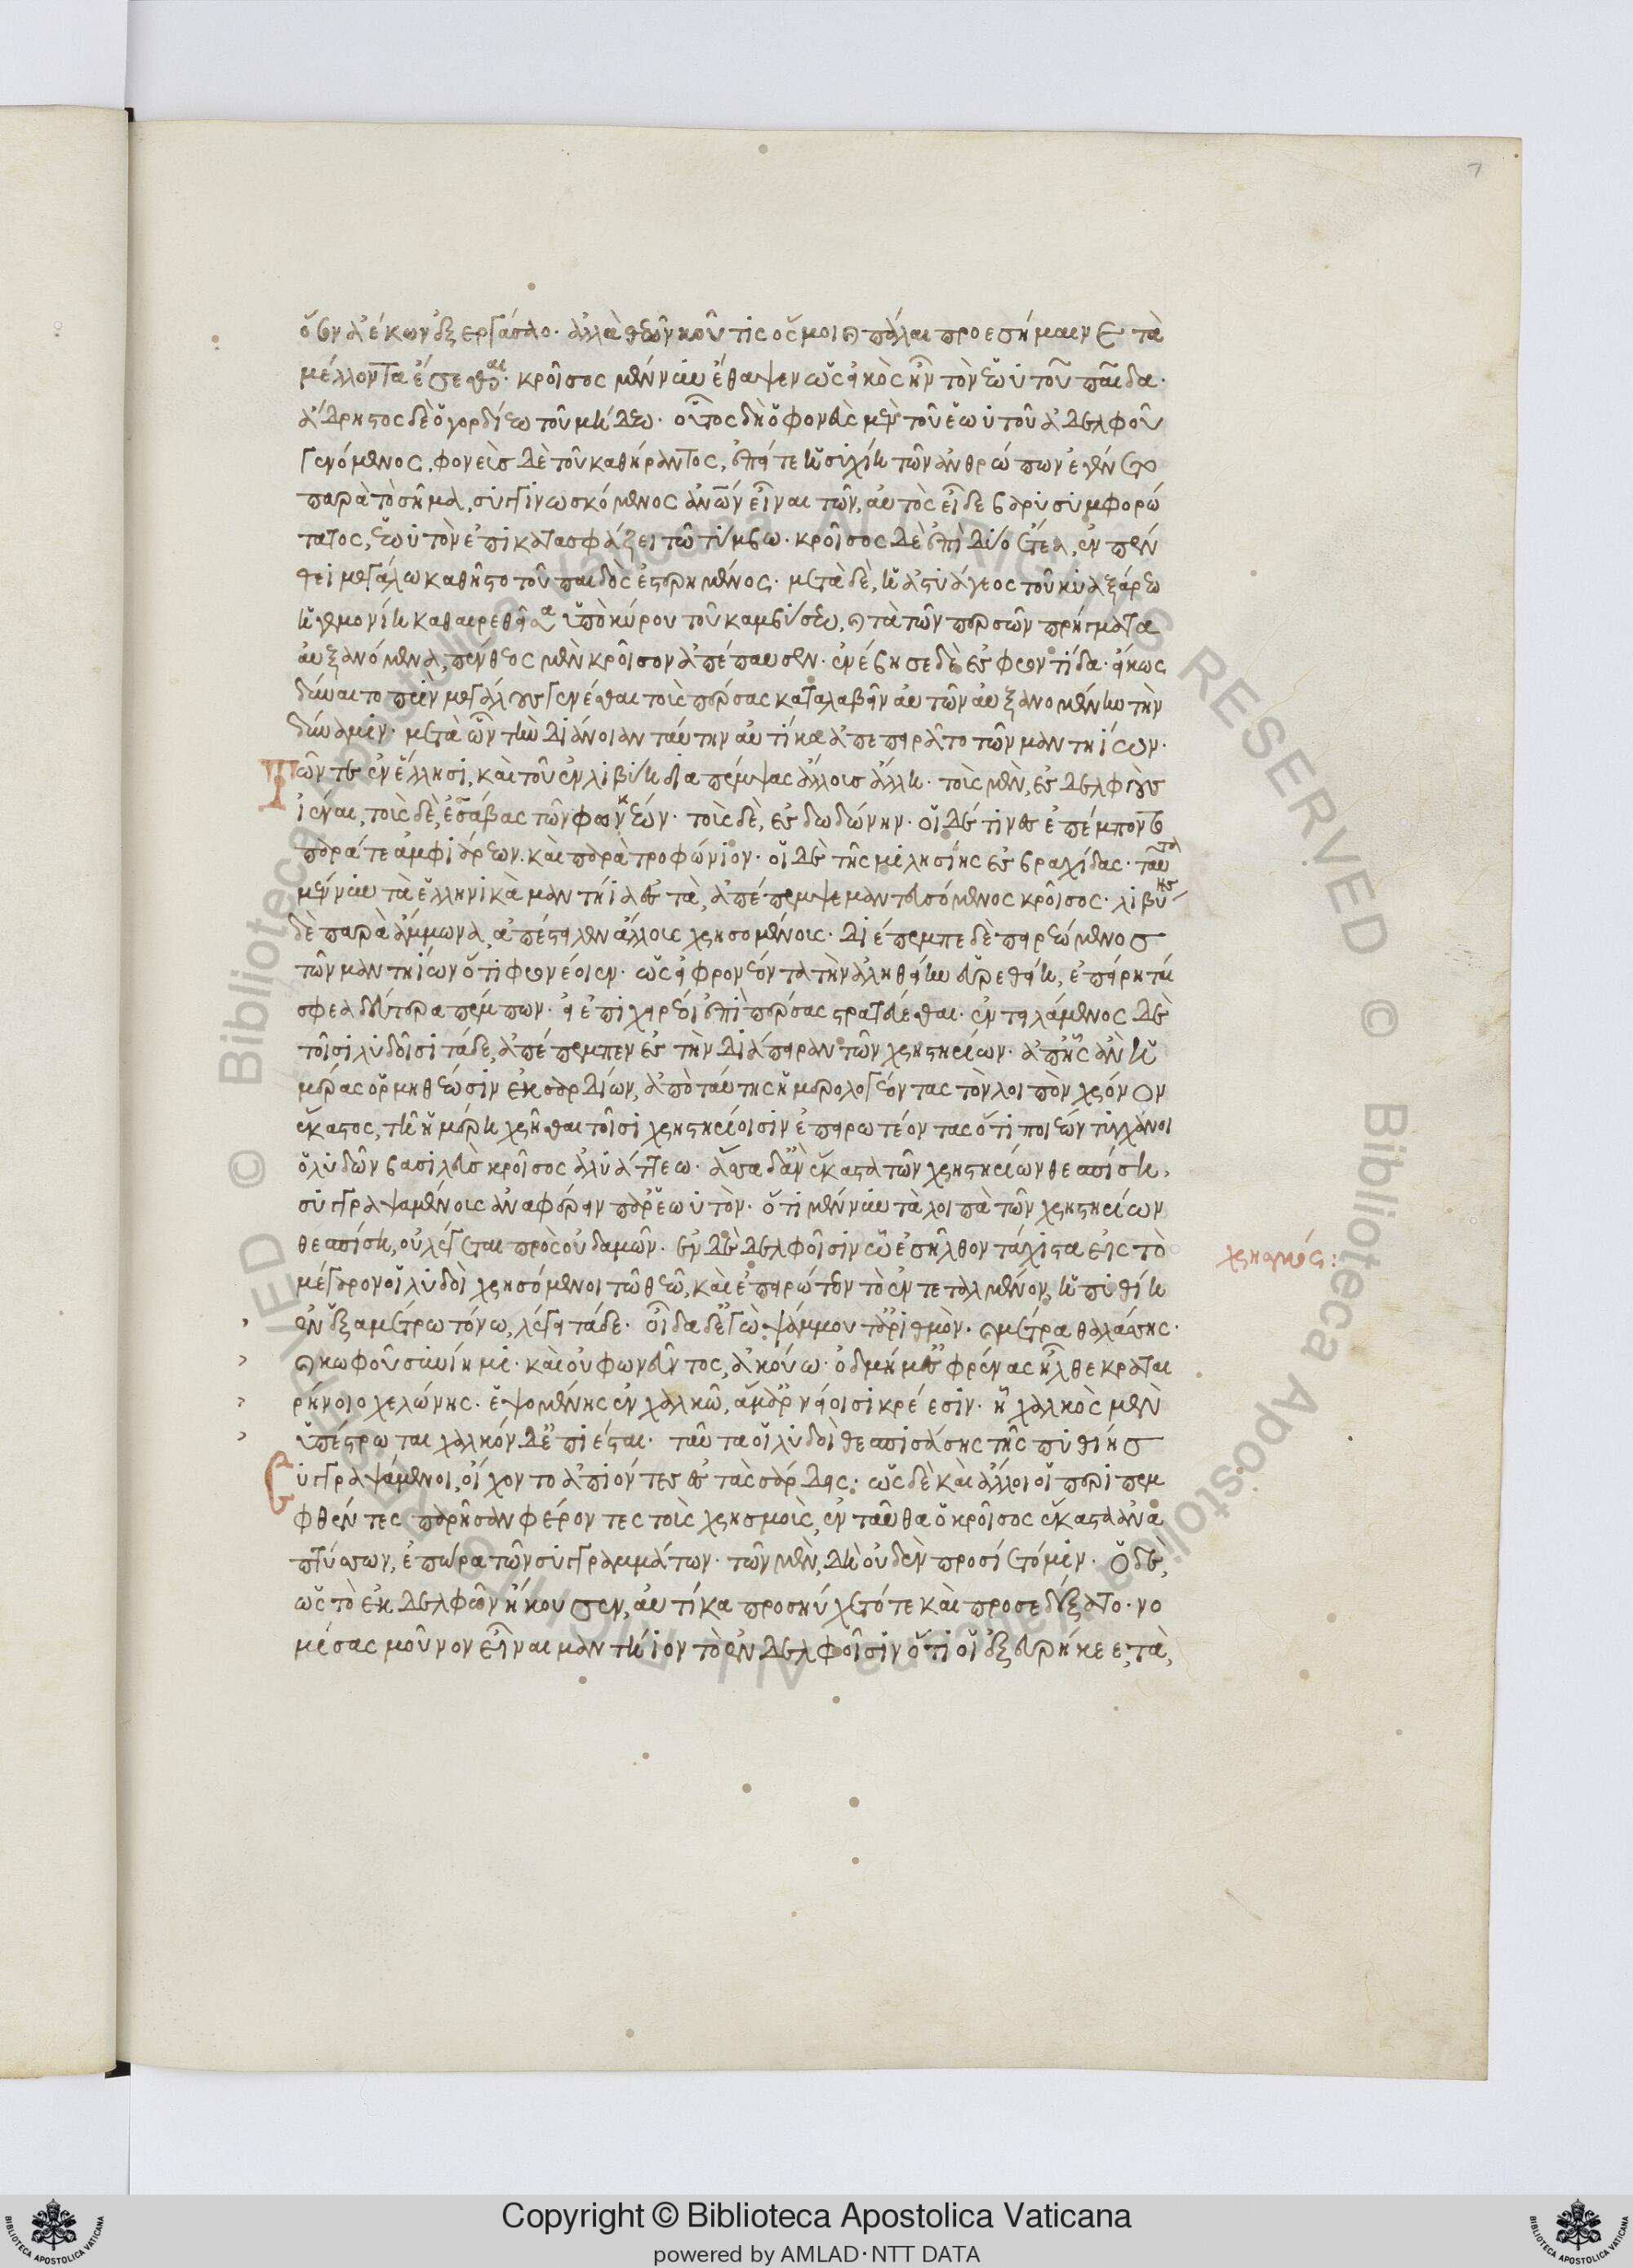 7
ὅσον ἀέκων ἐξεργάσαο. ἀλλὰ θεῶν κοῦ τις ὅς μοι καὶ πάλαι προεσήμαινε τὰ
μέλλοντα ἔσεσθαι. κροῖσος μέν νυν ἔθαψεν ὡς εἰκὸς ἦν τὸν ἑωυτοῦ παῖδα.
ἄδρηστος δὲ ὁ γορδίεω τοῦ μίδεω. οὗτος δὴ ὁ φονεὺς μὲν τοῦ ἑωυτοῦ ἀδελφοῦ
γενόμενος, φονεὺς δὲ τοῦ καθήραντος, ἐπεί τε ἡσυχίη τῶν ἀνθρώπων ἐγένετο
παρὰ τὸ σῆμα, συγγινωσκόμενος ἀνθρώπων εἶναι τῶν, αὐτὸς εἶδε βαρυσυμφορώ
τατος, ἑωυτὸν ἐπικατασφάζει τῶ τύμβω. κροῖσος δὲ ἐπὶ δύο ἔτεα, ἐν πέν
θεϊ μεγάλω καθῆστο τοῦ παιδὸς ἐστερημένος. μετὰ δὲ, ἡ ἀστυάγεος τοῦ κυαξάρεω
ἡγεμονίη καθαιρεθεῖσα ὑπὸ κύρου τοῦ καμβύσεω, καὶ τὰ τῶν περσῶν πρήγματα
αὐξανόμενα, πένθεος μὲν κροῖσον ἀπέπαυσεν. ἐνέβησε δὲ ἐς φροντίδα. εἴκως
δύναιτο πρὶν μεγάλους γενέσθαι τοὺς πέρσας καταλαβεῖν αὐτῶν αὐξανομένην τὴν
δύναμιν. μετὰ ὦν τὴν διάνοιαν ταύτην αὐτίκα ἀπεπειρᾶτο τῶν μαντηίων.
Τῶν τε ἐν ἕλλησι, καὶ τοῦ ἐν λιβύη διαπέμψας ἄλλους ἄλλη. τοὺς μὲν, ἐς δελφοὺς
ἰέναι, τοὺς δὲ, ἐς ἄβας τῶν φωκέων. τοὺς δὲ, ἐς δωδώνην. οἱ δέ τινες ἐπέμποντο
παρά τε ἀμφιάρεων. καὶ παρὰ τροφώνιον. οἱ δὲ τῆς μιλησίης ἐς βραχίδας. ταῦτα
μέν νυν τὰ ἑλληνικὰ μαντήια ἐς τὰ, ἀπέπεμψε μαντευσόμενος κροῖσος. λιβύης
δὲ παρὰ ἄμμωνα, ἀπέστειλεν ἄλλους χρησομένους. διέπεμπε δὲ πειρεώμενος
τῶν μαντηίων ὅτι φρονέοιεν. ὡς εἰ φρονέοντα τὴν ἀληθείην εὑρεθείη, ἐπείρηται
σφεα δεύτερα πέμπων. εἰ ἐπιχειρέοι ἐπὶ πέρσας στρατεύεσθαι. ἐντειλάμενος δὲ
τοῖσι λυδοῖσι τάδε, ἀπέπεμπεν ἐς τὴν διάπειραν τῶν χρηστηρίων. ἀπ ἧς ἂν ἡ
μέρας ὁρμηθέωσιν ἐκ σαρδίων, ἀπὸ ταύτης ἡμερολογέοντας τὸν λοιπὸν χρόνον
ἕκαστος, τῆ ἡμέρη χρῆσθαι τοῖσι χρηστηρίοισιν ἐπειρωτέοντας ὅτι ποιέων τυγχάνοι
ὁ λυδῶν βασιλεὺς κροῖσος ἀλυάττεω. ἅσσα δἂν ἕκαστα τῶν χρηστηρίων θεσπίση,
συγγραψαμένους ἀναφέρειν παρ ἑωυτόν. ὅτι μέν νυν τὰ λοιπὰ τῶν χρηστηρίων
θεσπίση, οὐ λέγεται πρὸς οὐδαμῶν. ἐν δὲ δελφοῖσιν ὡς ἐσῆλθον τάχιστα εἰς τὸ
μέγαρον οἱ λυδοὶ χρησόμενοι τῶ θεῶ, καὶ ἐπειρώτων τὸ ἐντεταλμένον, ἡ πυθίη
ἐν ἑξαμέτρω τόνω, λέγει τάδε. οἶδα δ ἐγὼ ψάμμου τ ἀριθμὸν. καὶ μέτρα θαλάσσης.
καὶ κωφοῦ συνίημι. καὶ οὐ φωνεῦντος, ἀκούω. ὀδμή μ ἐς φρένας ἦλθε κραται
ρήνοιο χελώνης. ἑψομένης ἐν χαλκῶ, ἅμ ἀρνείοισι κρέεσιν. ἧ χαλκὸς μὲν
ὑπέστρωται χαλκὸν δ ἐπιέσται. ταῦτα οἱ λυδοὶ θεσπισάσης τῆς πυθίης
Συγγραψάμενοι, οἴχοντο ἀπιόντες ἐς τὰς σάρδις. ὡς δὲ καὶ ἄλλοι οἱ περιπεμ
φθέντες παρῆσαν φέροντες τοὺς χρησμοὺς, ἐνταῦθα ὁ κροῖσος ἕκαστα ἀνα
πτύσσων, ἐπώρα τῶν συγγραμμάτων. τῶν μὲν, δὴ οὐδὲν προσίετό μιν. ὁ δὲ,
ὡς τὸ ἐκ δελφῶν ἤκουσεν, αὐτίκα προσηύχετό τε καὶ προσεδέξατο. νο
μίσας μοῦνον εἶναι μαντήιον τὸ ἐν δελφοῖσιν ὅτι οἱ ἐξευρήκεε, τὰ,
χρησμός:
© Biblioteca Apostolica Vaticana ALL RIGHTS RESERVED © Biblioteca Apostolica Vaticana ALL RIGHTS RESERVED
Copyright © Biblioteca Apostolica Vaticana
powered by AMLAD·NTT DATA
BIBLIOTECA APOSTOLICA VATICANA
BIBLIOTECA APOSTOLICA VATICANA